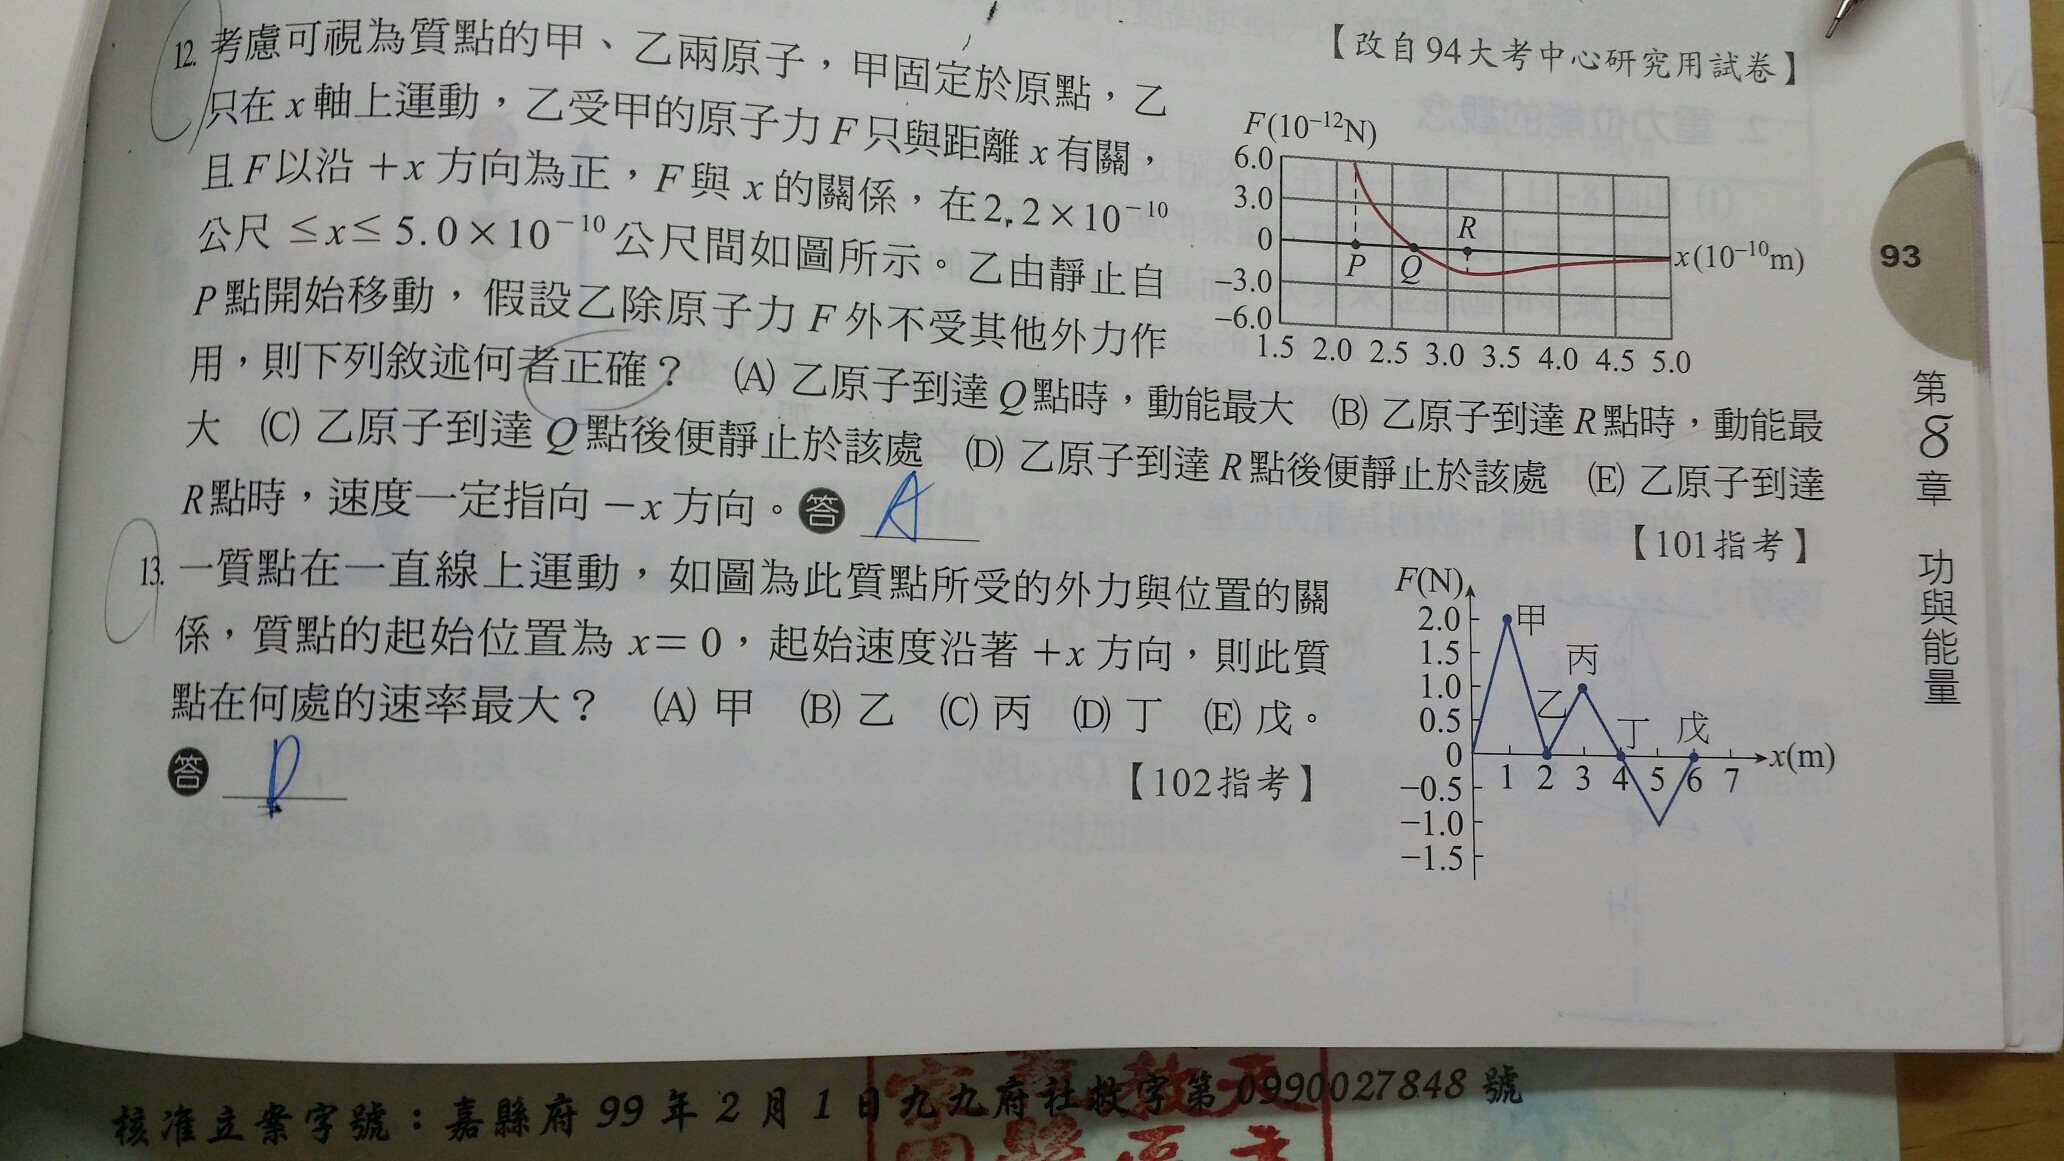 【改自94大考中心研究用試卷】
12. 考慮可視為質點的甲、乙兩原子，甲固定於原點，乙
只在 x 軸上運動，乙受甲的原子力 F 只與距離 x 有關，
且 F 以沿 +x 方向為正，F 與 x 的關係，在 2.2×10⁻¹⁰
公尺 ≤x≤ 5.0×10⁻¹⁰ 公尺間如圖所示。乙由靜止自
P 點開始移動，假設乙除原子力 F 外不受其他外力作
用，則下列敘述何者正確？ (A) 乙原子到達 Q 點時，動能最大 (B) 乙原子到達 R 點時，動能最
大 (C) 乙原子到達 Q 點後便靜止於該處 (D) 乙原子到達 R 點後便靜止於該處 (E) 乙原子到達
R 點時，速度一定指向 −x 方向。答 A
【101指考】
F(10⁻¹²N)
6.0
3.0
0
−3.0
−6.0
P Q R
x(10⁻¹⁰m)
1.5 2.0 2.5 3.0 3.5 4.0 4.5 5.0
13. 一質點在一直線上運動，如圖為此質點所受的外力與位置的關
係，質點的起始位置為 x=0，起始速度沿著 +x 方向，則此質
點在何處的速率最大？ (A) 甲 (B) 乙 (C) 丙 (D) 丁 (E) 戊。
答 D
【102指考】
F(N)
2.0
1.5
1.0
0.5
0
−0.5
−1.0
−1.5
甲
乙
丙
丁
戊
1 2 3 4 5 6 7
x(m)
93
第8章 功與能量
核准立案字號：嘉縣府99年2月1日九九府社教字第0990027848號